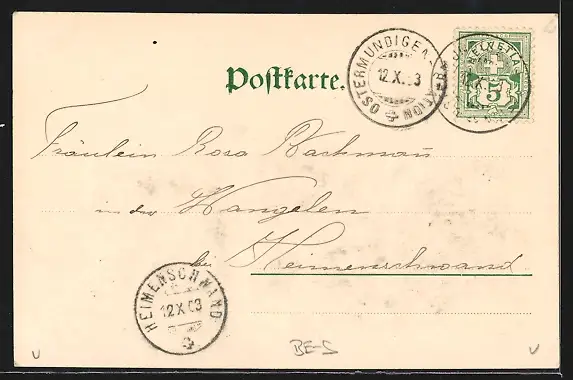 OSTERMUNDIGEN-STATION
12.X.03
HELVETIA
5
Postkarte.
Fräulein Rosa Bachmann
in der Wangelen
bei Heimenschwand
HEIMENSCHWAND
12.X.03
BE-S